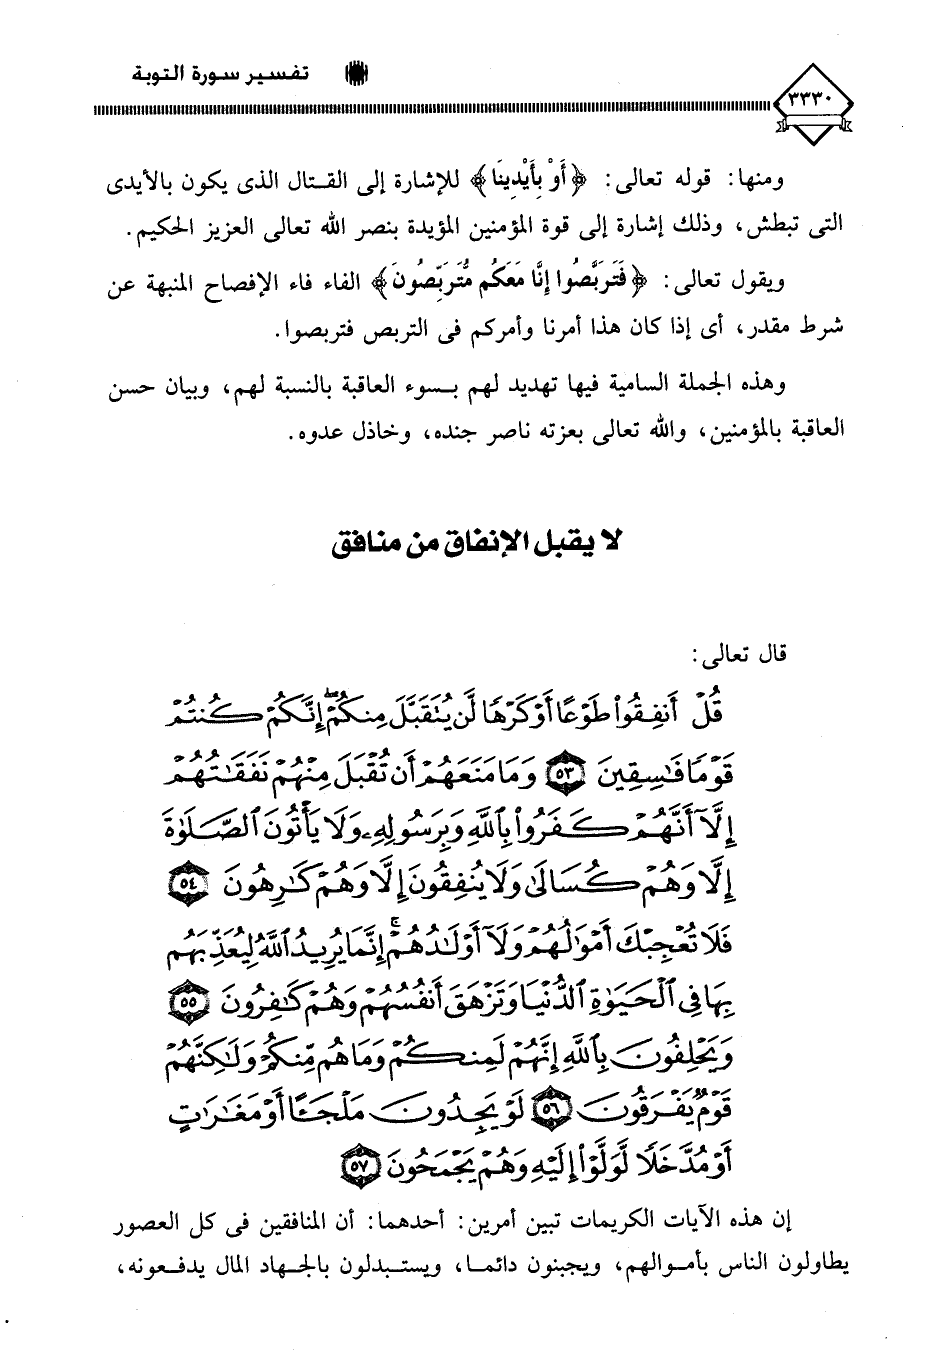 تفسير سورة التوبة
٣٣٣٠
ومنها: قوله تعالى: ﴿أَوْ بِأَيْدِينَا﴾ للإشارة إلى القتال الذى يكون بالأيدى
التى تبطش، وذلك إشارة إلى قوة المؤمنين المؤيدة بنصر الله تعالى العزيز الحكيم.
ويقول تعالى: ﴿فَتَرَبَّصُوا إِنَّا مَعَكُم مُّتَرَبِّصُونَ﴾ الفاء فاء الإفصاح المنبهة عن
شرط مقدر، أى إذا كان هذا أمرنا وأمركم فى التربص فتربصوا.
وهذه الجملة السامية فيها تهديد لهم بسوء العاقبة بالنسبة لهم، وبيان حسن
العاقبة بالمؤمنين، والله تعالى بعزته ناصر جنده، وخاذل عدوه.
لا يقبل الإنفاق من منافق
قال تعالى:
قُلْ أَنفِقُوا۟ طَوْعًا أَوْ كَرْهًا لَّن يُتَقَبَّلَ مِنكُمْ ۖ إِنَّكُمْ كُنتُمْ
قَوْمًا فَـٰسِقِينَ ٥٣ وَمَا مَنَعَهُمْ أَن تُقْبَلَ مِنْهُمْ نَفَقَـٰتُهُمْ
إِلَّآ أَنَّهُمْ كَفَرُوا۟ بِٱللَّهِ وَبِرَسُولِهِۦ وَلَا يَأْتُونَ ٱلصَّلَوٰةَ
إِلَّا وَهُمْ كُسَالَىٰ وَلَا يُنفِقُونَ إِلَّا وَهُمْ كَـٰرِهُونَ ٥٤
فَلَا تُعْجِبْكَ أَمْوَٰلُهُمْ وَلَآ أَوْلَـٰدُهُمْ ۚ إِنَّمَا يُرِيدُ ٱللَّهُ لِيُعَذِّبَهُم
بِهَا فِى ٱلْحَيَوٰةِ ٱلدُّنْيَا وَتَزْهَقَ أَنفُسُهُمْ وَهُمْ كَـٰفِرُونَ ٥٥
وَيَحْلِفُونَ بِٱللَّهِ إِنَّهُمْ لَمِنكُمْ وَمَا هُم مِّنكُمْ وَلَـٰكِنَّهُمْ
قَوْمٌ يَفْرَقُونَ ٥٦ لَوْ يَجِدُونَ مَلْجَـًٔا أَوْ مَغَـٰرَٰتٍ
أَوْ مُدَّخَلًا لَّوَلَّوْا۟ إِلَيْهِ وَهُمْ يَجْمَحُونَ ٥٧
إن هذه الآيات الكريمات تبين أمرين: أحدهما: أن المنافقين فى كل العصور
يطاولون الناس بأموالهم، ويجبنون دائما، ويستبدلون بالجهاد المال يدفعونه،